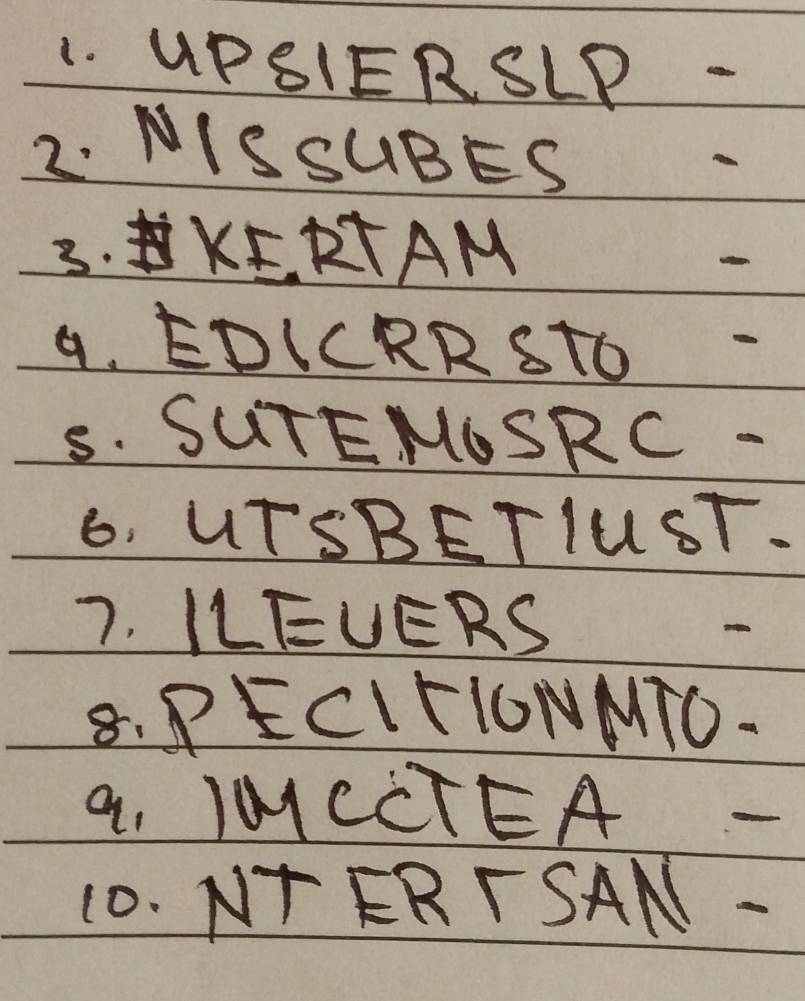 1. UPSIERSLP -
2. NISSUBES -
3. KERTAM -
4. EDICRRSTO -
5. SUTEMOSRC -
6. UTSBETIUST -
7. ILEVERS -
8. PECITIONMTO -
9. IMCCTEA -
10. NTERTSAN -